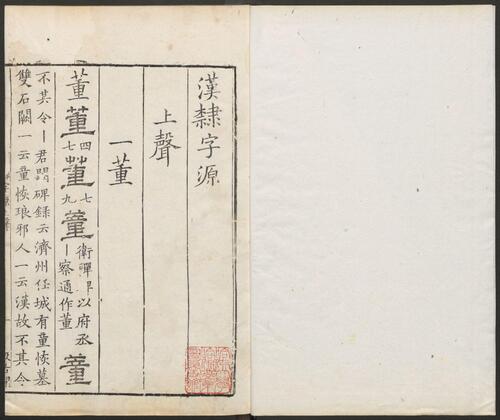 漢隸字源
上聲
一董
董董四七董七九董衛彈以府丞察通作董董
不其令君碑錄云濟州任城有童恢墓
雙石闕一云童恢琅邪人一云漢故不其令